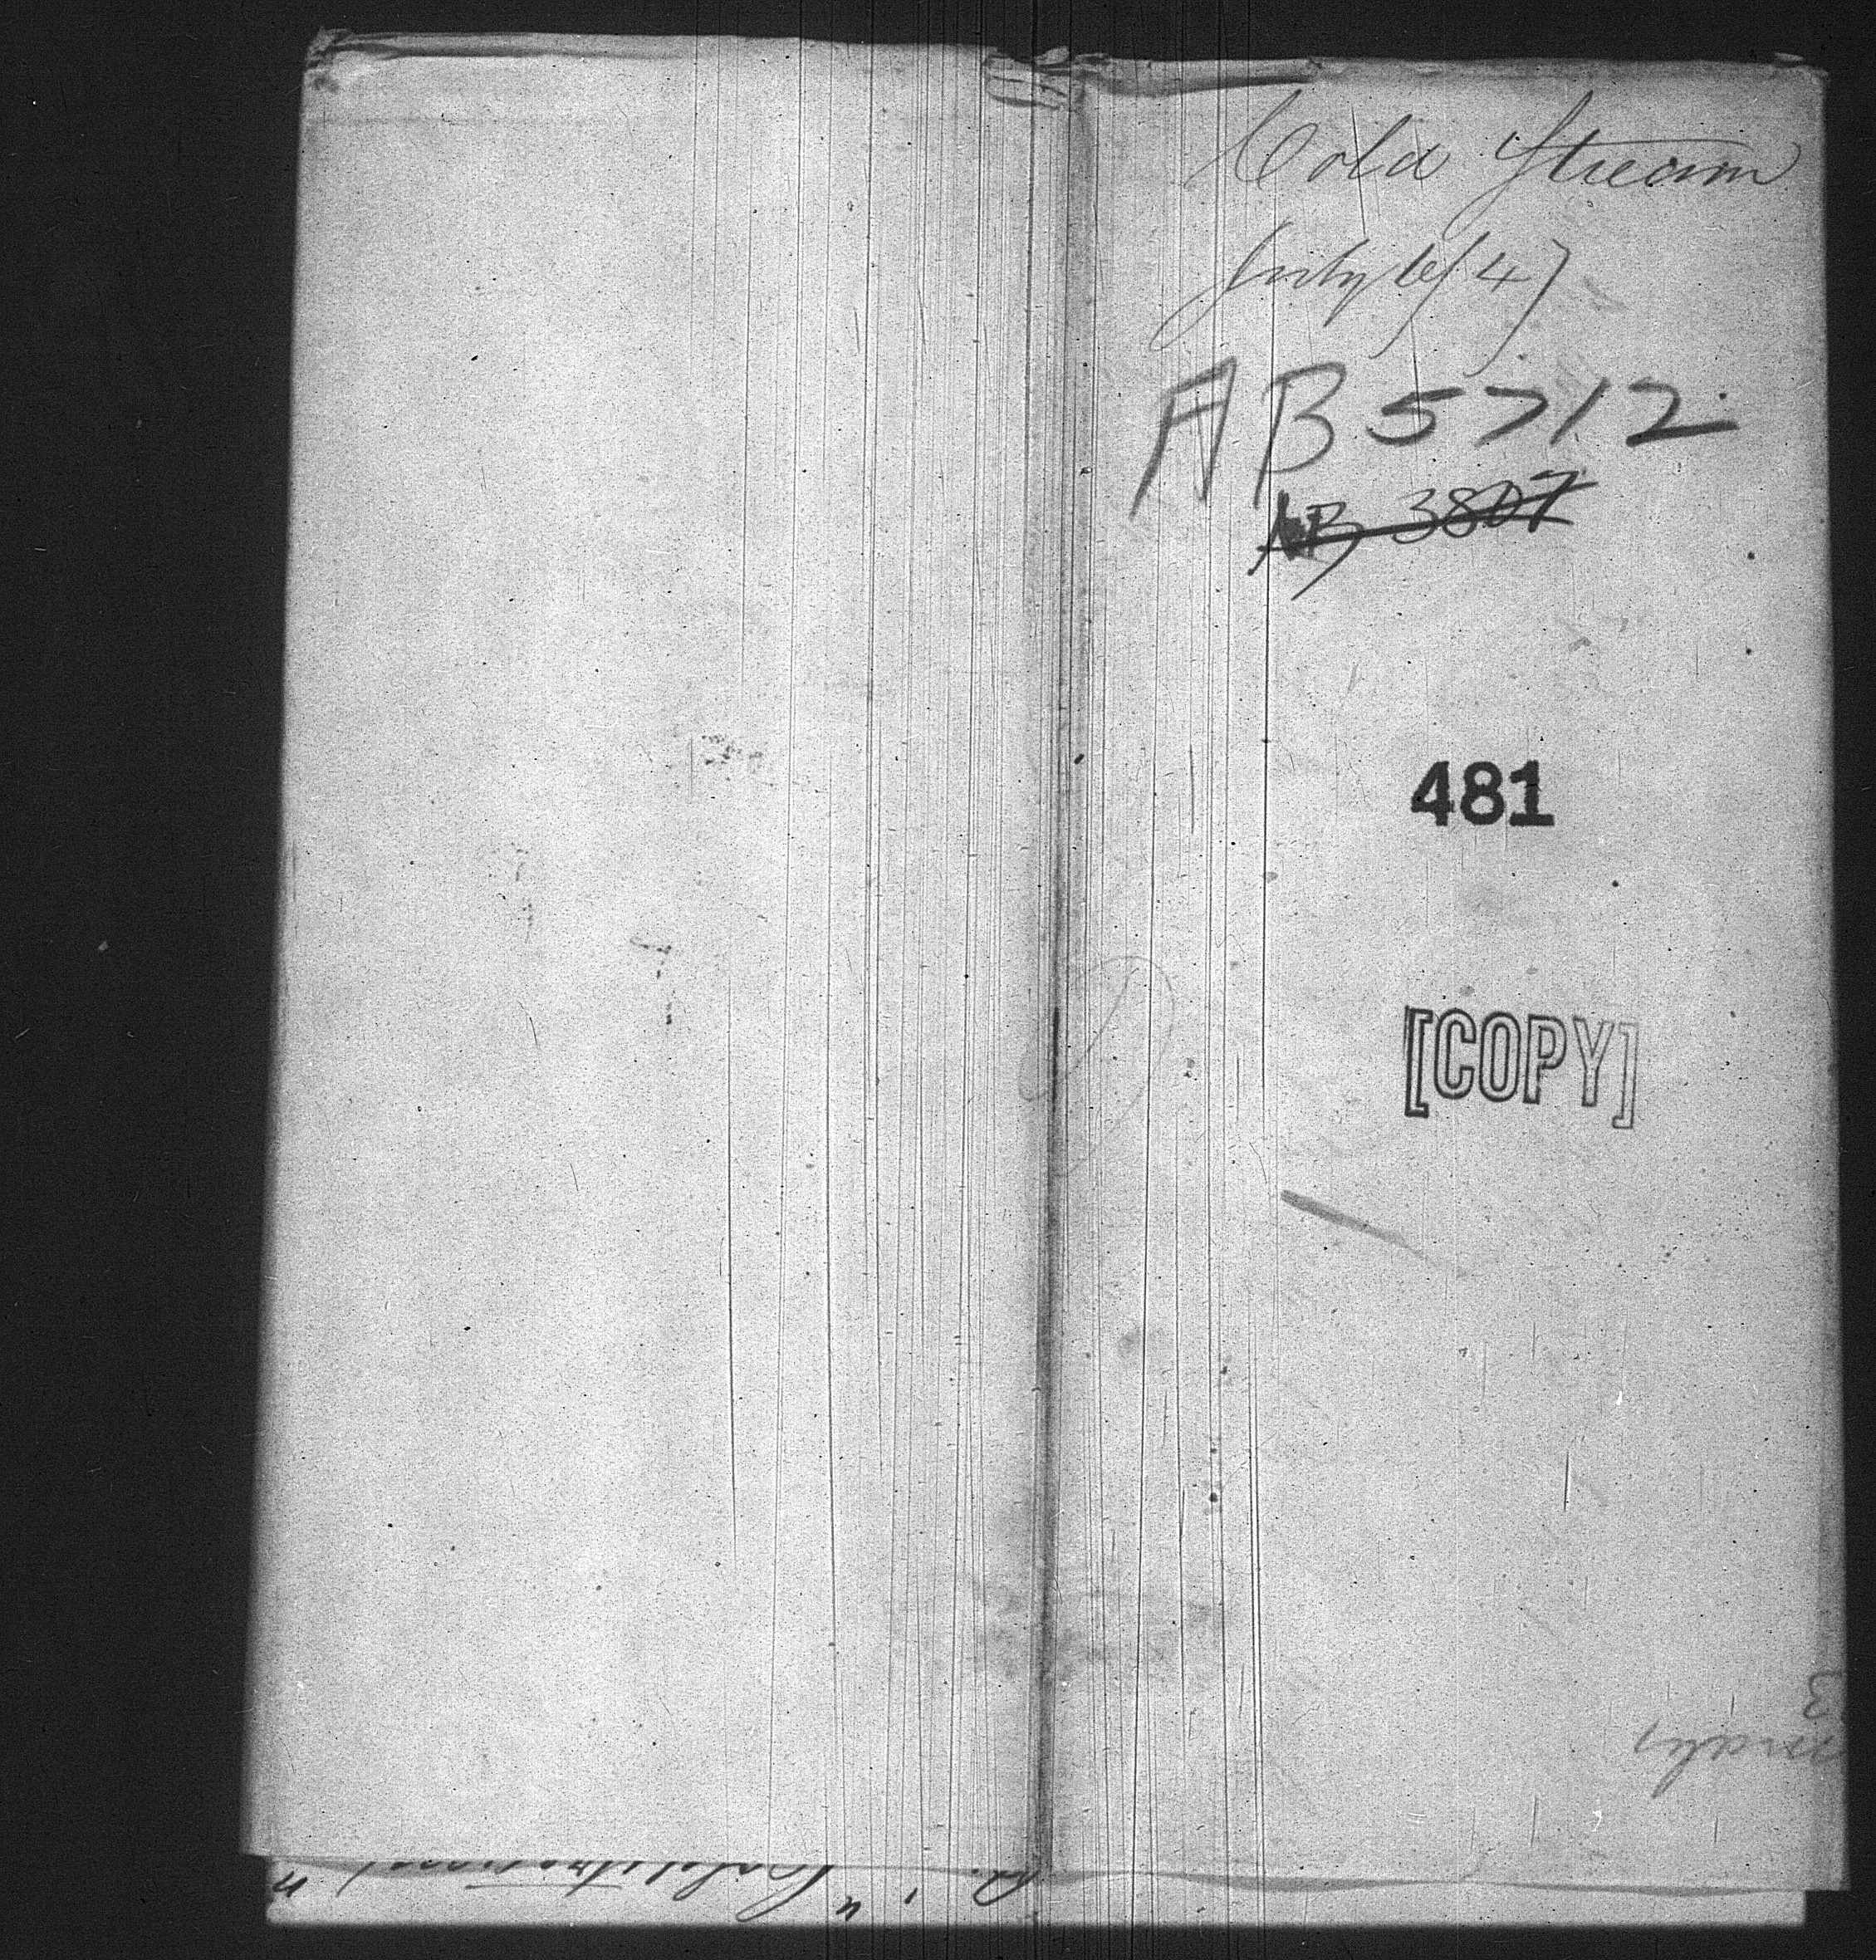 Cold Stream
July 6/47
AB 5712
AB 3807
481
[COPY]
3